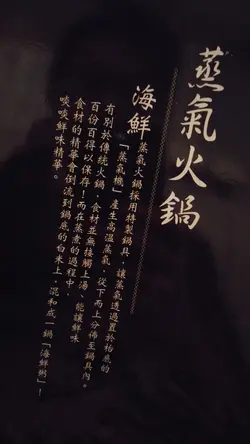 蒸氣火鍋
海鮮蒸氣火鍋採用特製鍋具，讓蒸氣透過置於枱底的
「蒸氣機」產生高溫蒸氣，從下而上分佈至鍋具內。
有別於傳統火鍋，食材並無接觸上湯、能讓鮮味
百份百得以保存！而在蒸煮的過程中，
食材的精華會倒流到鍋底的白米上，混和成一鍋「海鮮粥」！
啖啖鮮味精華。